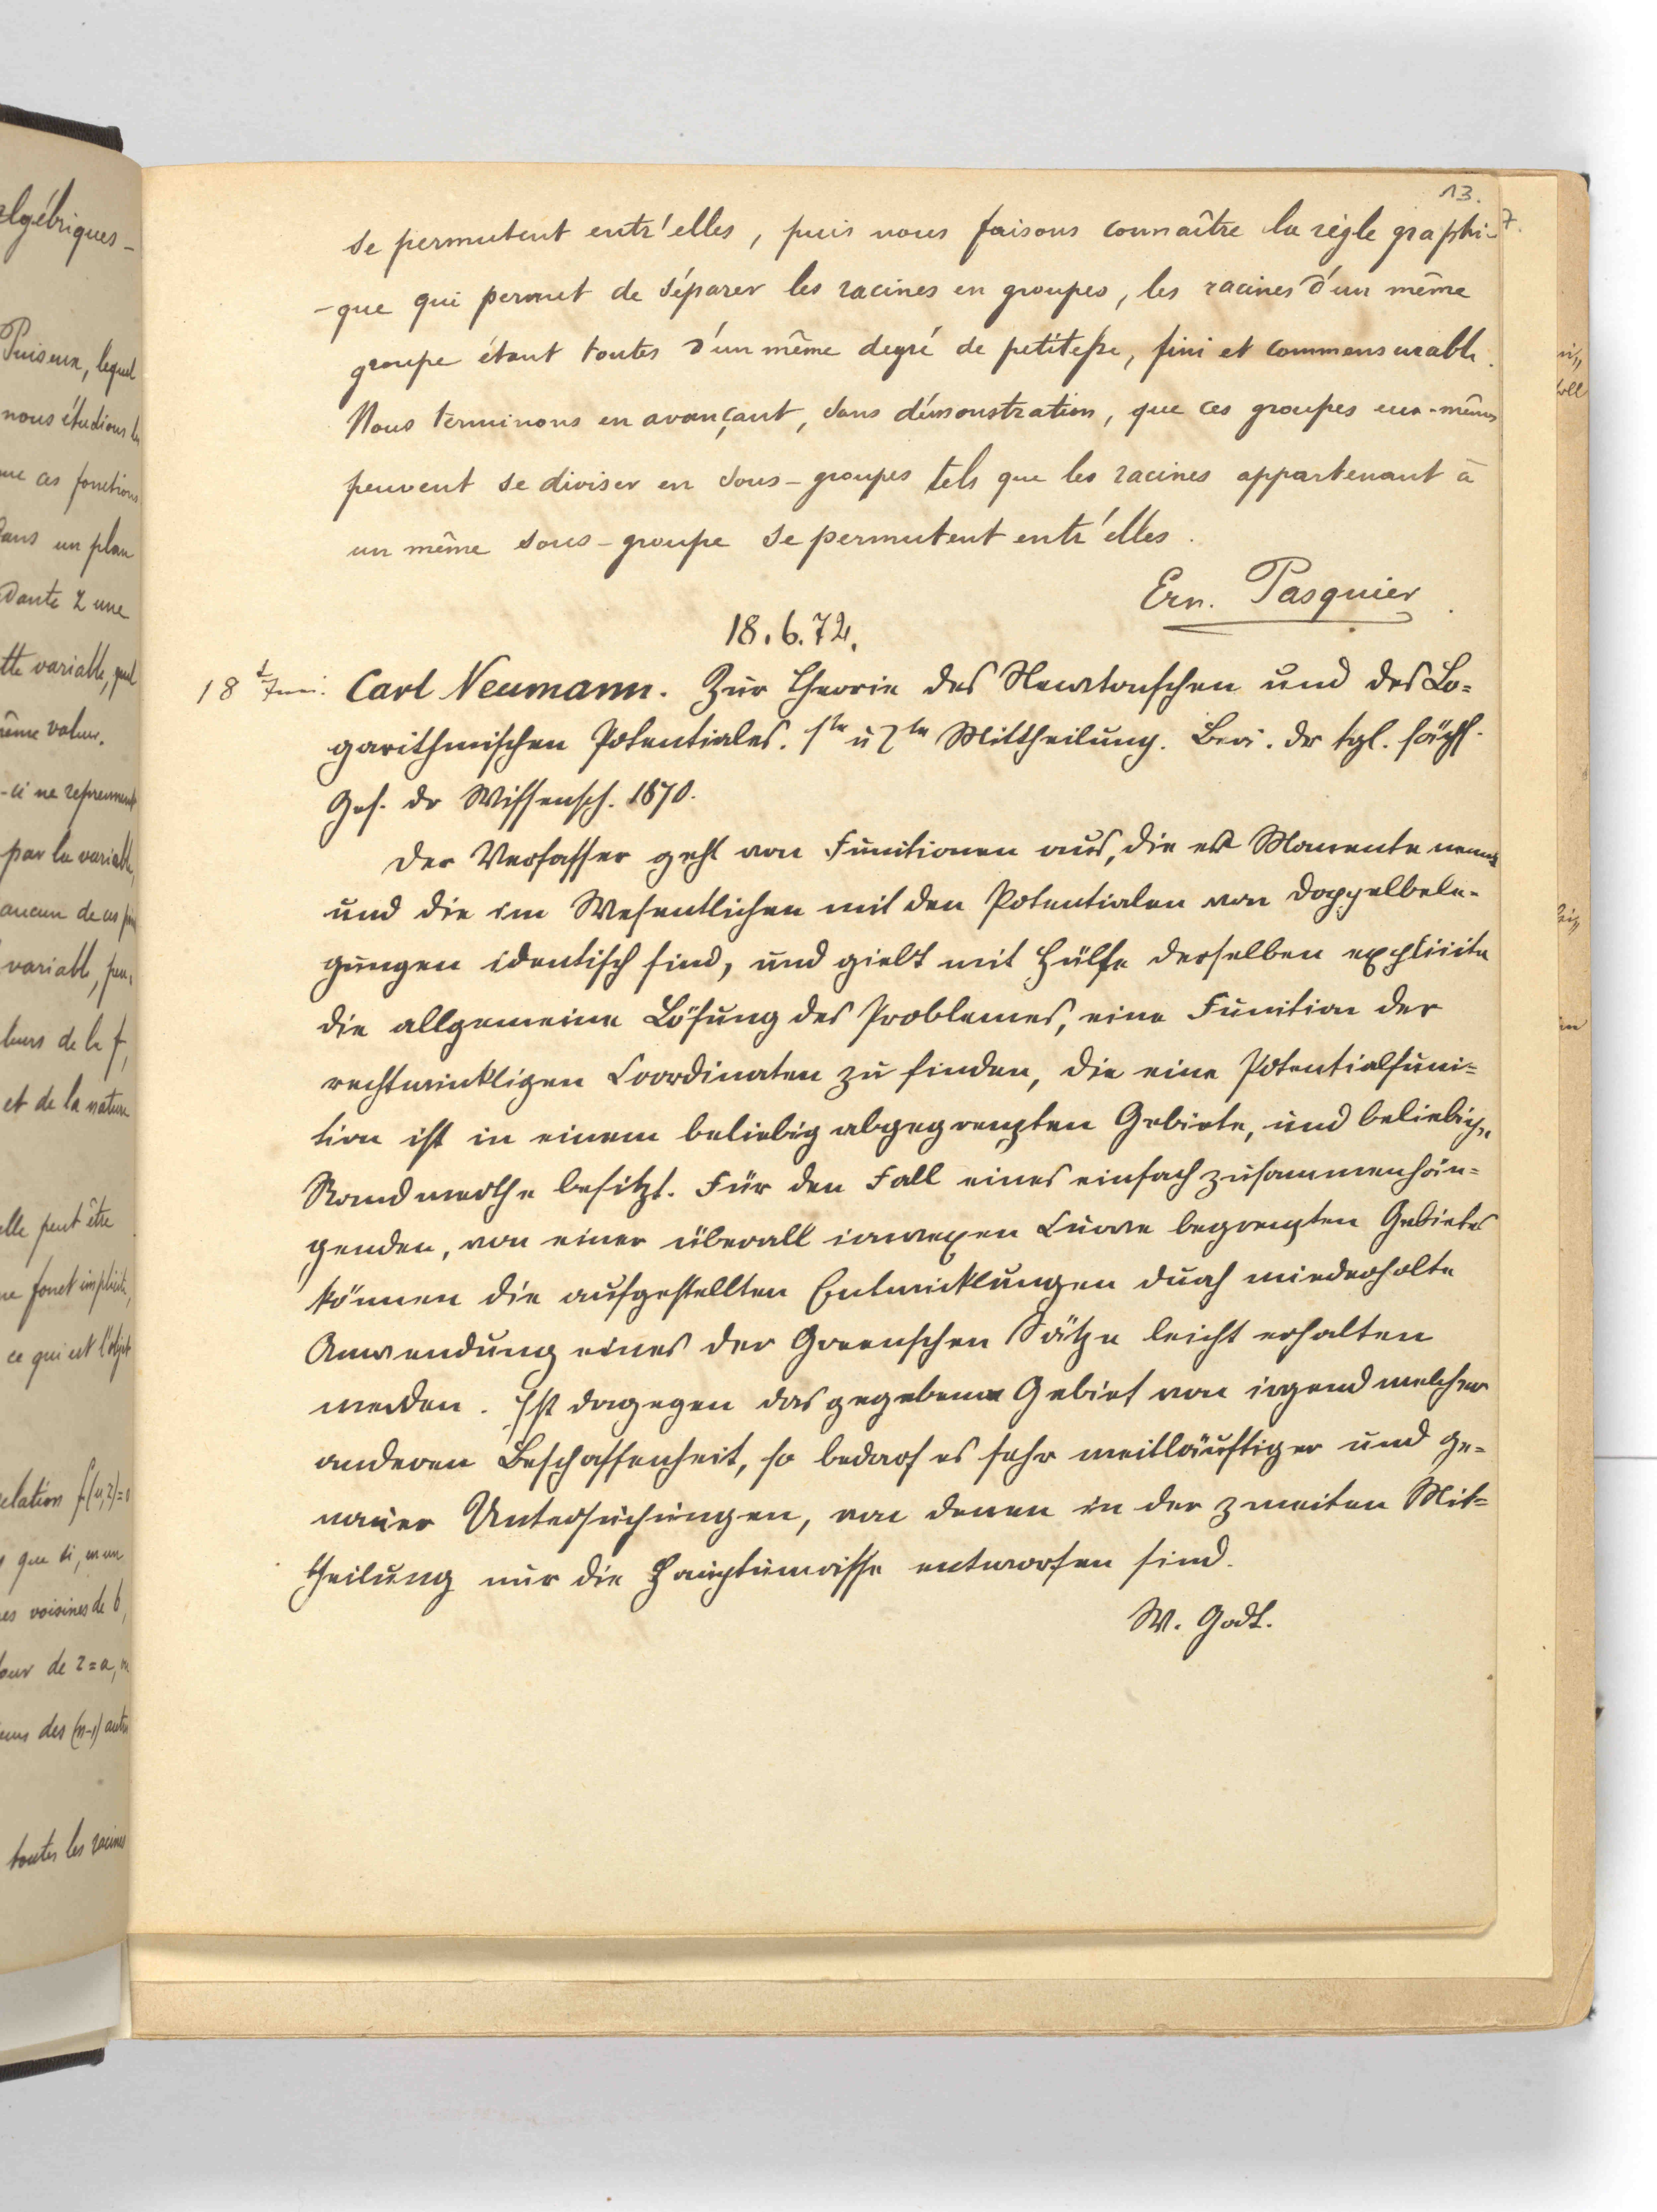 13.
7.
se permutent entr'elles, puis nous faisons connaître la règle graphi-
-que qui permet de séparer les racines en groupes, les racines d'un même
groupe étant toutes d'un même degré de petitesse, fini et commensurable.
Nous terminons en avançant, sans démonstration, que ces groupes eux-mêmes
peuvent se diviser en sous-groupes tels que les racines appartenant à
un même sous-groupe se permutent entr'elles.
Ern. Pasquier
18.6.72.
18 Juni. Carl Neumann. Zur Theorie des Newtonschen und des Lo=
garithmischen Potentiales. 1te u 2te Mittheilung. Ber. der kgl. sächs.
Ges. der Wissensch. 1870.
Der Verfasser geht von Functionen aus, die er Momente nennt
und die im Wesentlichen mit den Potentialen von Doppelbele-
gungen identisch sind, und giebt mit Hülfe derselben explicite
die allgemeine Lösung des Problemes, eine Function der
rechtwinkligen Coordinaten zu finden, die eine Potentialfunc=
tion ist in einem beliebig abgegrenzten Gebiete, und beliebige
Randwerthe besitzt. Für den Fall eines einfach zusammenhän=
genden, von einer überall convexen Curve begrenzten Gebietes
können die aufgestellten Entwicklungen durch wiederholte
Anwendung eines der Greenschen Sätze leicht erhalten
werden. Ist dagegen das gegebene Gebiet von irgend welcher
anderen Beschaffenheit, so bedarf es sehr weitläuftiger und ge=
nauer Untersuchungen, von denen in der zweiten Mit=
theilung nur die Hauptumrisse entworfen sind.
W. Godt.
algébriques-
Puiseux, lequel
nous étudions les
que ces fonctions
dans un plan
variable, quel
même valeur.
-ci ne reprennent
par la variable,
aucun de ces
variable,
et de la nature
elle peut être
ce qui est l'objet
relation f(u,z)=0
que si, en un
voisines de b,
tour de z=a,
des (n-1) autres
toutes les racines